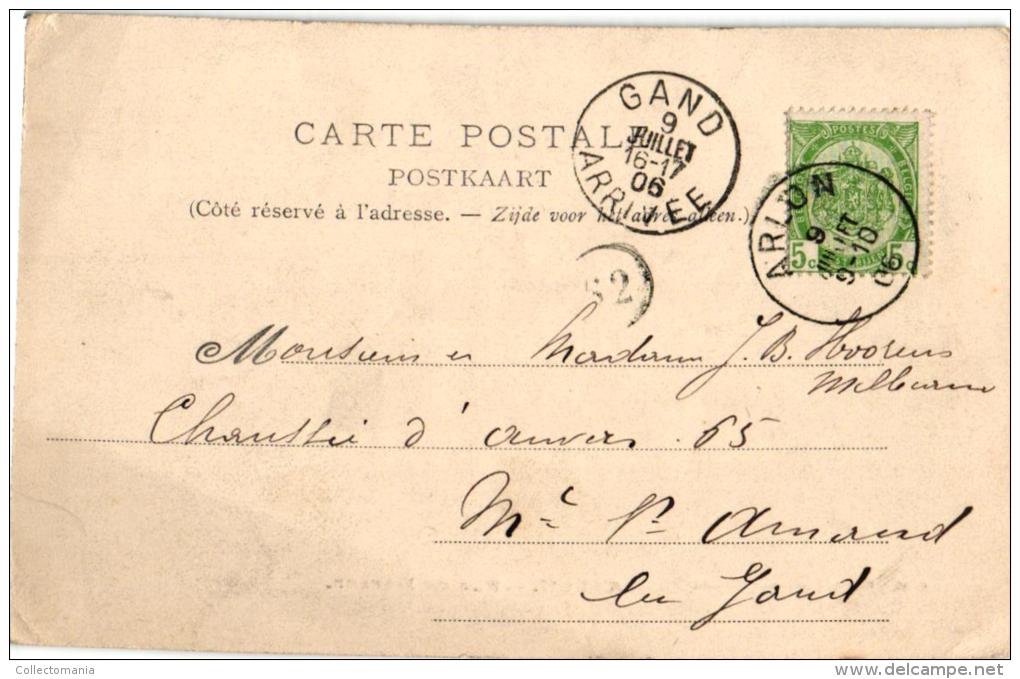 CARTE POSTALE
POSTKAART
(Côté réservé à l'adresse. — Zijde voor het adres alleen.)
GAND
9
JUILLET
16-17
06
ARRIVÉE
POSTES
5c 5c
ARLON
9
JUILLET
9-10
06
62
Monsieur et Madame J. B. Hoorens
Chaussée d'anvers 65
Mt St Amand
lez Gand
Collectomania
www.delcampe.net